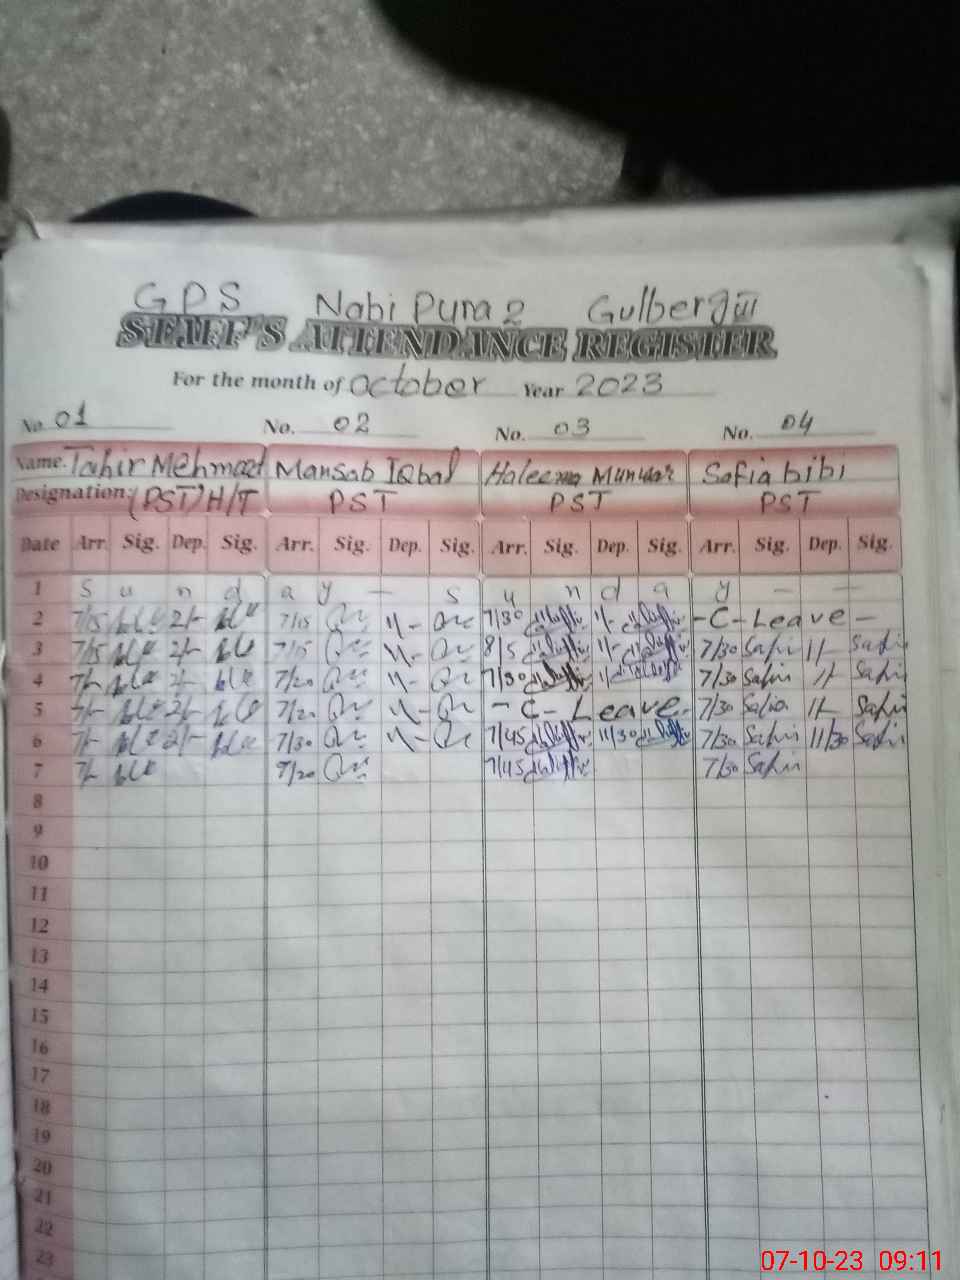 GPS Nabi Pura 2 Gulberg III
STAFF'S ATTENDANCE REGISTER
For the month of October Year 2023
No. 01 No. 02 No. 03 No. 04
Name. Tahir Mehmood Mansab Iqbal Haleema Munwar Safia bibi
Designation: (PST) H/T PST PST PST
Date Arr. Sig. Dep. Sig. Arr. Sig. Dep. Sig. Arr. Sig. Dep. Sig. Arr. Sig. Dep. Sig.
1 S u n d a y — S u n d a y — —
2 7/15 2/- 7/15 11/- 7/30 11/- - C - Leave -
3 7/15 2/- 7/15 11/- 8/5 11/- 7/30 Safi 11/- Safi
4 7/- 2/- 7/20 11/- 7/30 11/- 7/30 Safi 11/- Safi
5 7/- 2/- 7/20 11/- - C - Leave - 7/30 Safia 11/- Safi
6 7/- 2/- 7/30 11/- 7/45 11/30 7/30 Safi 11/30 Safi
7 7/- 7/20 7/45 7/30 Safi
8
9
10
11
12
13
14
15
16
17
18
19
20
21
22
23
07-10-23 09:11